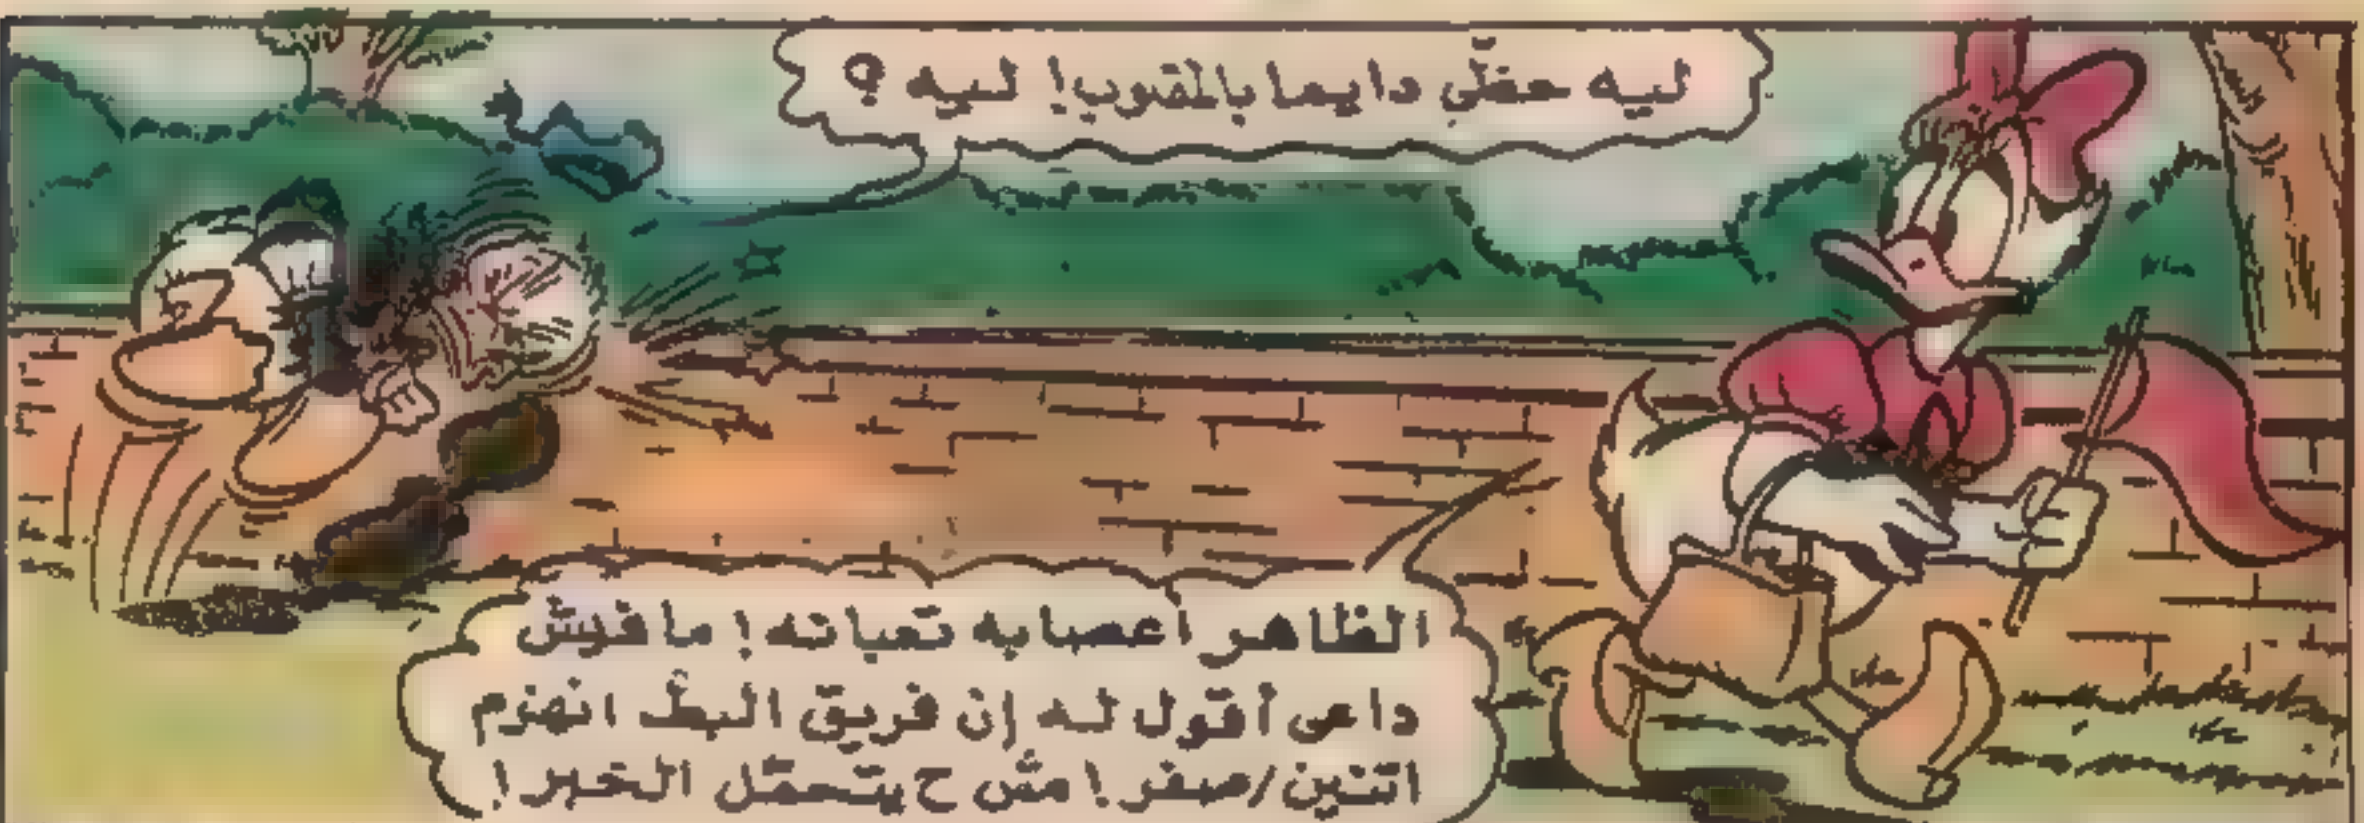 ليه حظّي دايما بالمقلوب! ليه ؟
الظاهر اعصابه تعبانه! مافيش
داعى أقول له إن فريق البط انهزم
اتنين/صفر! مش ح يتحمّل الخبر!